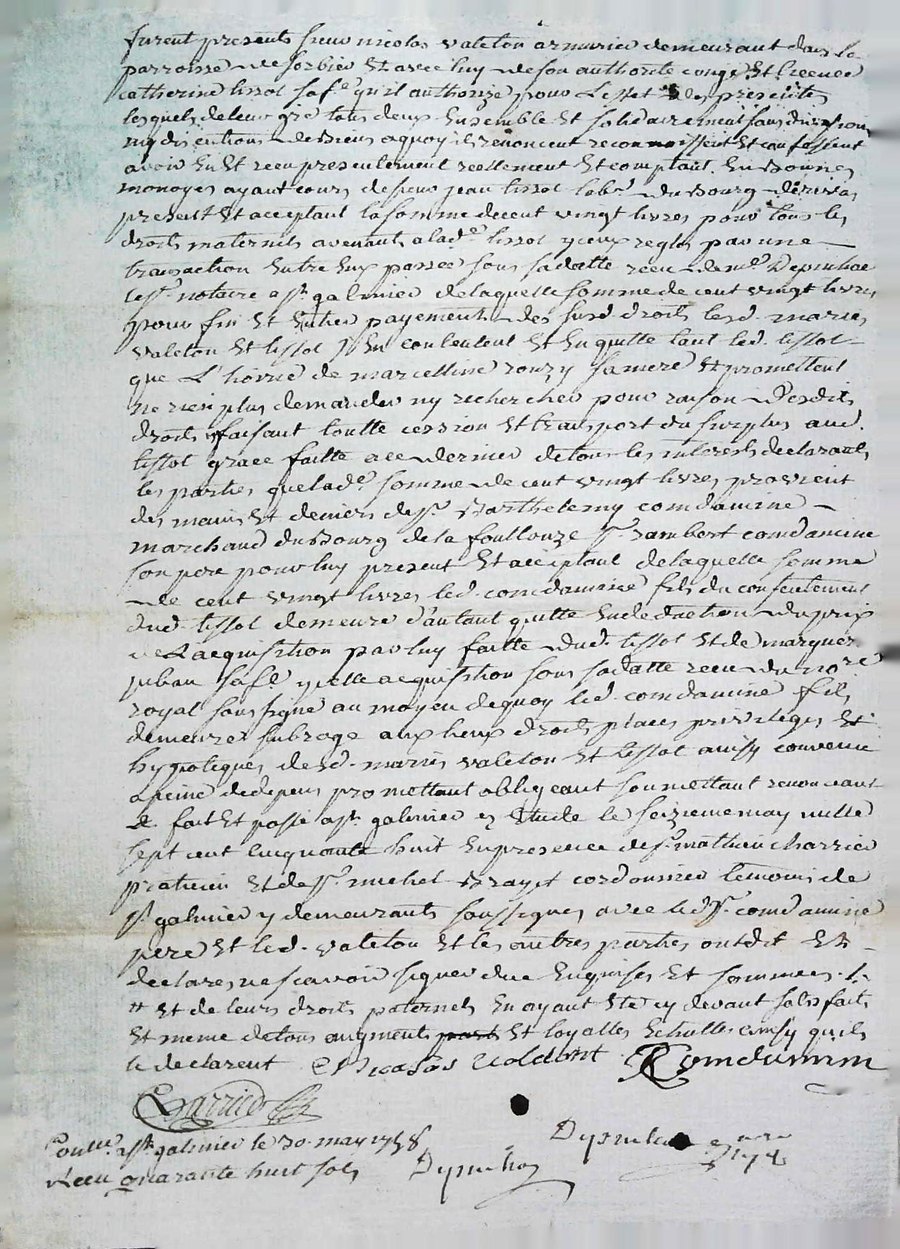 furent presents sieur nicolas valeton armurier demeurant dans la
parroisse de sorbier et avec luy de son authorité congé et licence
catherine tissot sa fe. qu'il authorize pour l'effet des presentes
lesquels de leur gré tous deux ensemble et solidairement sans division
ny discutions de biens a quoy ils renoncent reconnoissent et confessent
avoir eu et receu presentement reellement et comptant en bonnes
monoyes ayant cours de sieur jean tissot labr. du bourg de rivas
present et aceptant la somme de cent vingt livres pour tous les
droits maternels avenants a lade. tissot yceux reglés par une
transaction entre eux passée sous sa datte receu de me. Depinhac
notaire a st. galmier de laquelle somme de cent vingt livres
pour fin et entier payement des susd droits lesd. mariés
valeton et tissot s'en contentent et en quitte tant led. tissot
que l'hoirie de marcelline rouzy sa mere et promettent
ne rien plus demander ny rechercher pour raison desdits
droits faisant toutte cession et transport du surplus aud.
tissot grace faitte a ce dernier de tous les interests declarants
les parties que lade. somme de cent vingt livres provient
des mains et deniers de sr. Barthelemy comdamine
marchand du bourg de la foullouze sr. rambert comdamine
son pere pour luy present et aceptant de laquelle somme
de cent vingt livres led. comdamine fils du consentement
dud. tissot demeure d'autant quitte en deduction du prix
de l'acquisition par luy faitte dud. tissot et de marguer.
juban sa fe. ycelle acquisition sous sa datte receu du nore.
royal soussigné au moyen de quoy led. comdamine fils
demeure subrogé aux lieux droits places privileges et
hypoteques desd. mariés valeton et tissot ainsy convenu
a peine de depens promettant obligeant soumettant renonceant
&. fait et passé a st. galmier en étude le seizieme may mille
sept cent cinquante huit en presence de sr. mathieu charrier
praticien et de sr. michel Brayet cordonnier temoins de
st. galmier y demeurants soussignés avec led. sr. comdamine
pere et led. valeton et les autres parties ont dit et
declaré ne scavoir signer due enquises et sommées
# et de leurs droits paternels en ayant eté cy devant satisfaits
et meme de tous augment et loyalles echuttes ainsy qu'ils
le declarent Nicolas Comdamin
Charrier
Contlé. a st. galmier le 30 may 1758
Receu quarante huit sols
Depinhac